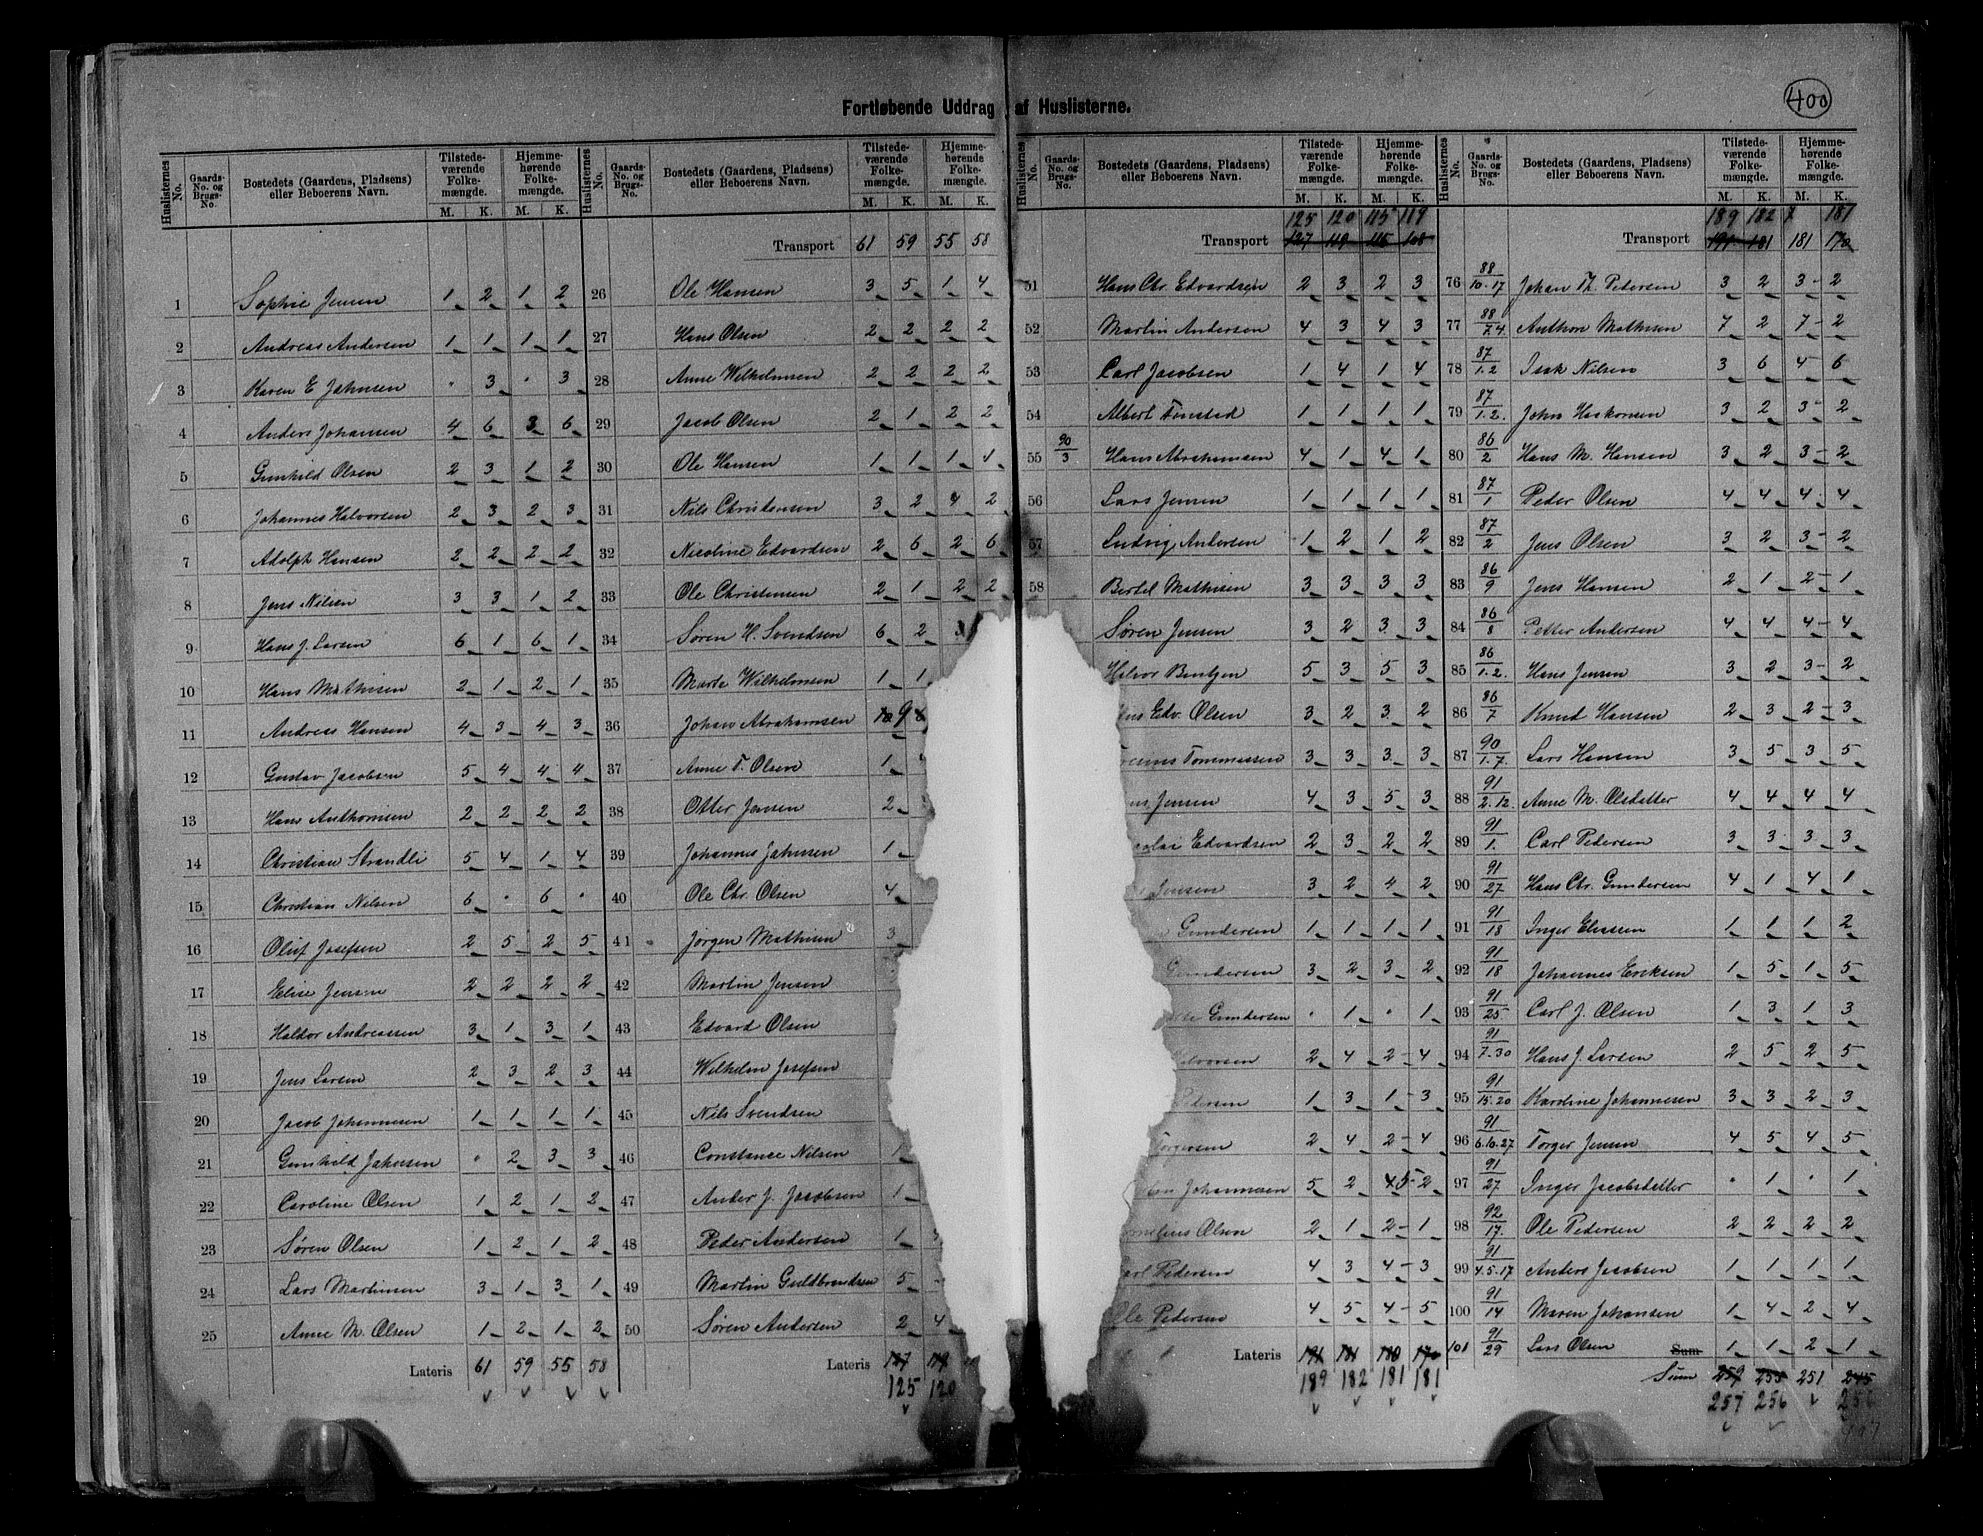 400
Fortløbende Uddrag af Huslisterne.
Huslisternes No. Gaards-No. og Brugs-No. Bostedets (Gaardens, Pladsens) eller Beboerens Navn. Tilstedeværende Folkemængde. M. K. Hjemmehørende Folkemængde. M. K.
1 Sophie Jensen 1 2 1 2
2 Andreas Andersen 1 1 1 1
3 Karen E Jahnsen " 3 " 3
4 Anders Johansen 4 6 3 6
5 Gunhild Olsen 2 3 1 2
6 Johannes Halvorsen 2 3 2 3
7 Adolph Hansen 2 2 2 2
8 Jens Nilsen 3 3 1 2
9 Hans J. Larsen 6 1 6 1
10 Hans Mathisen 2 1 2 1
11 Andreas Hansen 4 3 4 3
12 Gustav Jacobsen 5 4 4 4
13 Hans Anthonisen 2 2 2 2
14 Christian Strandli 5 4 1 4
15 Christian Nilsen 6 " 6 "
16 Oluf Josefsen 2 5 2 5
17 Elise Jensen 2 2 2 2
18 Haldor Andreassen 3 1 3 1
19 Jens Larsen 2 3 2 3
20 Jacob Johannesen 1 1 1 1
21 Gunhild Jahnsen " 2 3 3
22 Caroline Olsen 1 2 1 2
23 Søren Olsen 1 2 1 2
24 Lars Martinsen 3 1 3 1
25 Anne M. Olsen 1 2 1 2
Lateris 61 59 55 58
Huslisternes No. Gaards-No. og Brugs-No. Bostedets (Gaardens, Pladsens) eller Beboerens Navn. Tilstedeværende Folkemængde. M. K. Hjemmehørende Folkemængde. M. K.
Transport 61 59 55 58
26 Ole Hansen 3 5 1 4
27 Hans Olsen 2 2 2 2
28 Anne Wilhelmsen 2 2 2 2
29 Jacob Olsen 2 1 2 2
30 Ole Hansen 1 1 1 1
31 Nils Christensen 3 2 4 2
32 Nicoline Edvardsen 2 6 2 6
33 Ole Christensen 2 1 2 2
34 Søren H. Svendsen 6 2
35 Marte Wilhelmsen 1 1
36 Johan Abrahamsen 9
37 Anne T. Olsen 1
38 Otter Jensen 2
39 Johannes Jahnsen 1
40 Ole Chr. Olsen 4
41 Jørgen Mathisen 3
42 Martin Jensen
43 Edvard Olsen
44 Wilhelm Josefsen
45 Nils Svendsen
46 Constance Nilsen 1
47 Ander J. Jacobsen 1
48 Peder Andersen 1
49 Martin Guldbrandsen 5
50 Søren Andersen 2 4
Lateris 127 119
125 120
Huslisternes No. Gaards-No. og Brugs-No. Bostedets (Gaardens, Pladsens) eller Beboerens Navn. Tilstedeværende Folkemængde. M. K. Hjemmehørende Folkemængde. M. K.
125 120 115 119
Transport 127 119 115 108
51 Hans Chr. Edvardsen 2 3 2 3
52 Martin Andersen 4 3 4 3
53 Carl Jacobsen 1 4 1 4
54 Albert Finstad 1 1 1 1
55 90/3 Hans Abrahamsen 4 1 4 1
56 Lars Jensen 1 1 1 1
57 Ludvig Andersen 1 2 1 2
58 Bertel Mathisen 3 3 3 3
Søren Jensen 3 2 3 3
Halvor Bentzen 5 3 5 3
Edv. Olsen 3 2 3 2
Tommessen 3 3 3 3
Jensen 4 3 5 3
Edvardsen 2 3 2 2
Jensen 3 2 4 2
Gundersen 1 1 1 1
Gundersen 3 2 3 2
Gundersen " 1 " 1
Halvorsen 2 4 2 4
Pedersen 1 3 1 3
Torgersen 2 4 2 4
Johannesen 5 2 4 5 2
Cornelius Olsen 2 1 2 1
Carl Pedersen 4 3 4 3
Ole Pedersen 4 5 4 5
Lateris 191 181 180 170
189 182 181 181
Huslisternes No. Gaards-No. og Brugs-No. Bostedets (Gaardens, Pladsens) eller Beboerens Navn. Tilstedeværende Folkemængde. M. K. Hjemmehørende Folkemængde. M. K.
189 182 181
Transport 191 181 181 170
76 88/10.17 Johan Th. Pedersen 3 2 3 2
77 88/7.4 Anthon Mathisen 7 2 7 2
78 87/1.2 Isak Nilsen 3 6 4 6
79 87/1.2. John Haakonsen 3 2 3 2
80 86/2 Hans M. Hansen 3 2 3 2
81 87/1 Peder Olsen 4 4 4 4
82 87/2 Jens Olsen 3 2 3 2
83 86/9 Jens Hansen 2 1 2 1
84 86/8 Petter Andersen 4 4 4 4
85 86/1.2. Hans Jensen 3 2 3 2
86 86/7 Knud Hansen 2 3 2 3
87 90/1.7. Lars Hansen 3 5 3 5
88 91/2.12. Anne M. Olsdatter 4 4 4 4
89 91/1. Carl Pedersen 3 3 3 3
90 91/27 Hans Chr. Gundersen 4 1 4 1
91 91/18 Inger Eliassen 1 1 1 2
92 91/18 Johannes Eriksen 1 5 1 5
93 91/25 Carl J. Olsen 1 3 1 3
94 91/7.30 Hans J. Larsen 2 5 2 5
95 91/15.20 Karoline Johannesen 3 3 2 3
96 91/6.10.27 Torger Jensen 4 5 4 5
97 91/27 Inger Jacobsdatter " 1 " 1
98 92/17. Ole Pedersen 2 2 2 2
99 91/4.5.17 Anders Jacobsen 1 1 1 1
100 91/14 Maren Johansen 1 4 2 4
101 91/29 Lars Olsen Sum 1 1 2 1
Sum 259 255 251 245
257 256 256